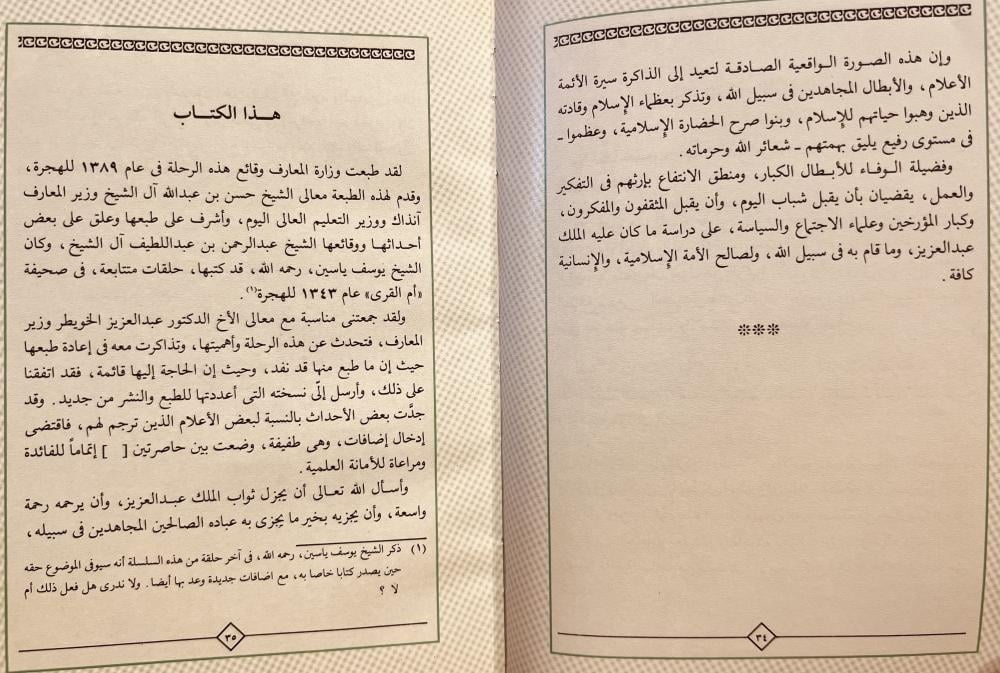 وإن هذه الصورة الواقعية الصادقة لتعيد إلى الذاكرة سيرة الأئمة
الأعلام، والأبطال المجاهدين فى سبيل الله، وتذكر بعظماء الإسلام وقادته
الذين وهبوا حياتهم للإسلام، وبنوا صرح الحضارة الإسلامية، وعظموا ـ
فى مستوى رفيع يليق بهمتهم ـ شعائر الله وحرماته.
وفضيلة الوفاء للأبطال الكبار، ومنطق الانتفاع بإرثهم فى التفكير
والعمل، يقضيان بأن يقبل شباب اليوم، وأن يقبل المثقفون والمفكرون،
وكبار المؤرخين وعلماء الاجتماع والسياسة، على دراسة ما كان عليه الملك
عبدالعزيز، وما قام به فى سبيل الله، ولصالح الأمة الإسلامية، والإنسانية
كافة.
***
٣٤
هذا الكتاب
لقد طبعت وزارة المعارف وقائع هذه الرحلة فى عام ١٣٨٩ للهجرة،
وقدم لهذه الطبعة معالى الشيخ حسن بن عبدالله آل الشيخ وزير المعارف
آنذاك ووزير التعليم العالى اليوم، وأشرف على طبعها وعلق على بعض
أحداثها ووقائعها الشيخ عبدالرحمن بن عبداللطيف آل الشيخ، وكان
الشيخ يوسف ياسين، رحمه الله، قد كتبها، حلقات متتابعة، فى صحيفة
«أم القرى» عام ١٣٤٣ للهجرة(١).
ولقد جمعتنى مناسبة مع معالى الأخ الدكتور عبدالعزيز الخويطر وزير
المعارف، فتحدث عن هذه الرحلة وأهميتها، وتذاكرت معه فى إعادة طبعها
حيث إن ما طبع منها قد نفد، وحيث إن الحاجة إليها قائمة، فقد اتفقنا
على ذلك، وأرسل إلىّ نسخته التى أعددتها للطبع والنشر من جديد. وقد
جدَّت بعض الأحداث بالنسبة لبعض الأعلام الذين ترجم لهم، فاقتضى
إدخال إضافات، وهى طفيفة، وضعت بين حاصرتين [ ] إتماماً للفائدة
ومراعاة للأمانة العلمية.
وأسأل الله تعالى أن يجزل ثواب الملك عبدالعزيز، وأن يرحمه رحمة
واسعة، وأن يجزيه بخير ما يجزى به عباده الصالحين المجاهدين فى سبيله،
(١) ذكر الشيخ يوسف ياسين، رحمه الله، فى آخر حلقة من هذه السلسلة أنه سيوفى الموضوع حقه
حين يصدر كتابا خاصا به، مع اضافات جديدة وعد بها أيضا. ولا ندرى هل فعل ذلك أم
لا ؟
٣٥